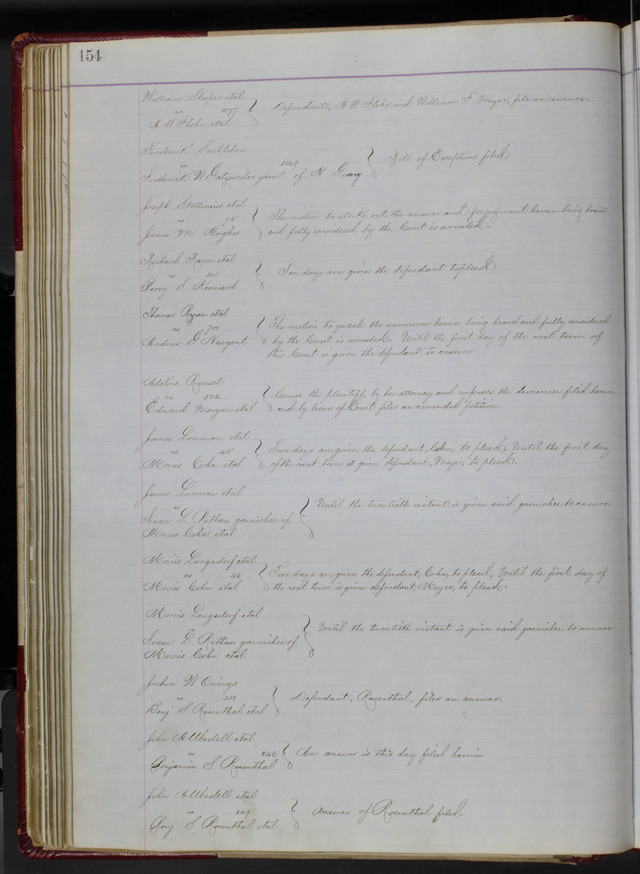 154
William Sleeper etal
vs 1897
A W Flohr etal
Defendants, A W Flohr and William F Meyer, file an answer.
Frederick
vs 1149
Frederick W garn of H Georg
Bill of Exceptions filed
Joseph Stettinius etal
vs 78
James M Hughes
The motion to strike out the answer and for judgment herein being heard
and fully considered by the Court is overruled.
Richard etal
vs 201
Perry S Kennard
Ten days are given the defendant to plead
Thomas Ryan etal
vs 701
Andrew D Nugent
The motion to quash the summons herein being heard and fully considered
by the Court is overruled. Until the first day of the next term of
this Court is given the defendant to answer.
Adeline Russel
vs 522
Edward Morgan etal
Comes the plaintiff, by her attorney and confesses the demurrer filed herein
and by leave of Court files an amended petition.
James Lowman etal
vs 45
Morris Cohn etal
Two days are given the defendant, Cohn, to plead. Until the first day
of the next term is given defendant, Meyer, to plead.
James Lowman etal
vs
Isaac L garnishee of
Morris Cohn etal
Until the twentieth instant is given said garnishee to answer
Morris Langsdorf etal
vs 44
Morris Cohn etal
Two days are given the defendent, Cohn, to plead, Until the first day of
the next term is given defendant, Meyer, to plead.
Morris Langsdorf etal
vs
Isaac L garnishee of,
Morris Cohn etal
Until the twentieth instant is given said garnishee to answer
Joshua W Owings
vs
Benj S Rosenthal etal
Defendant, Rosenthal, files an answer.
John A Ubsdell etal
vs 846
Benjamin S Rosenthal
An answer is this day filed herein.
John A Ubsdell etal
vs 849
Benj S Rosenthal etal
Answer of Rosenthal filed.